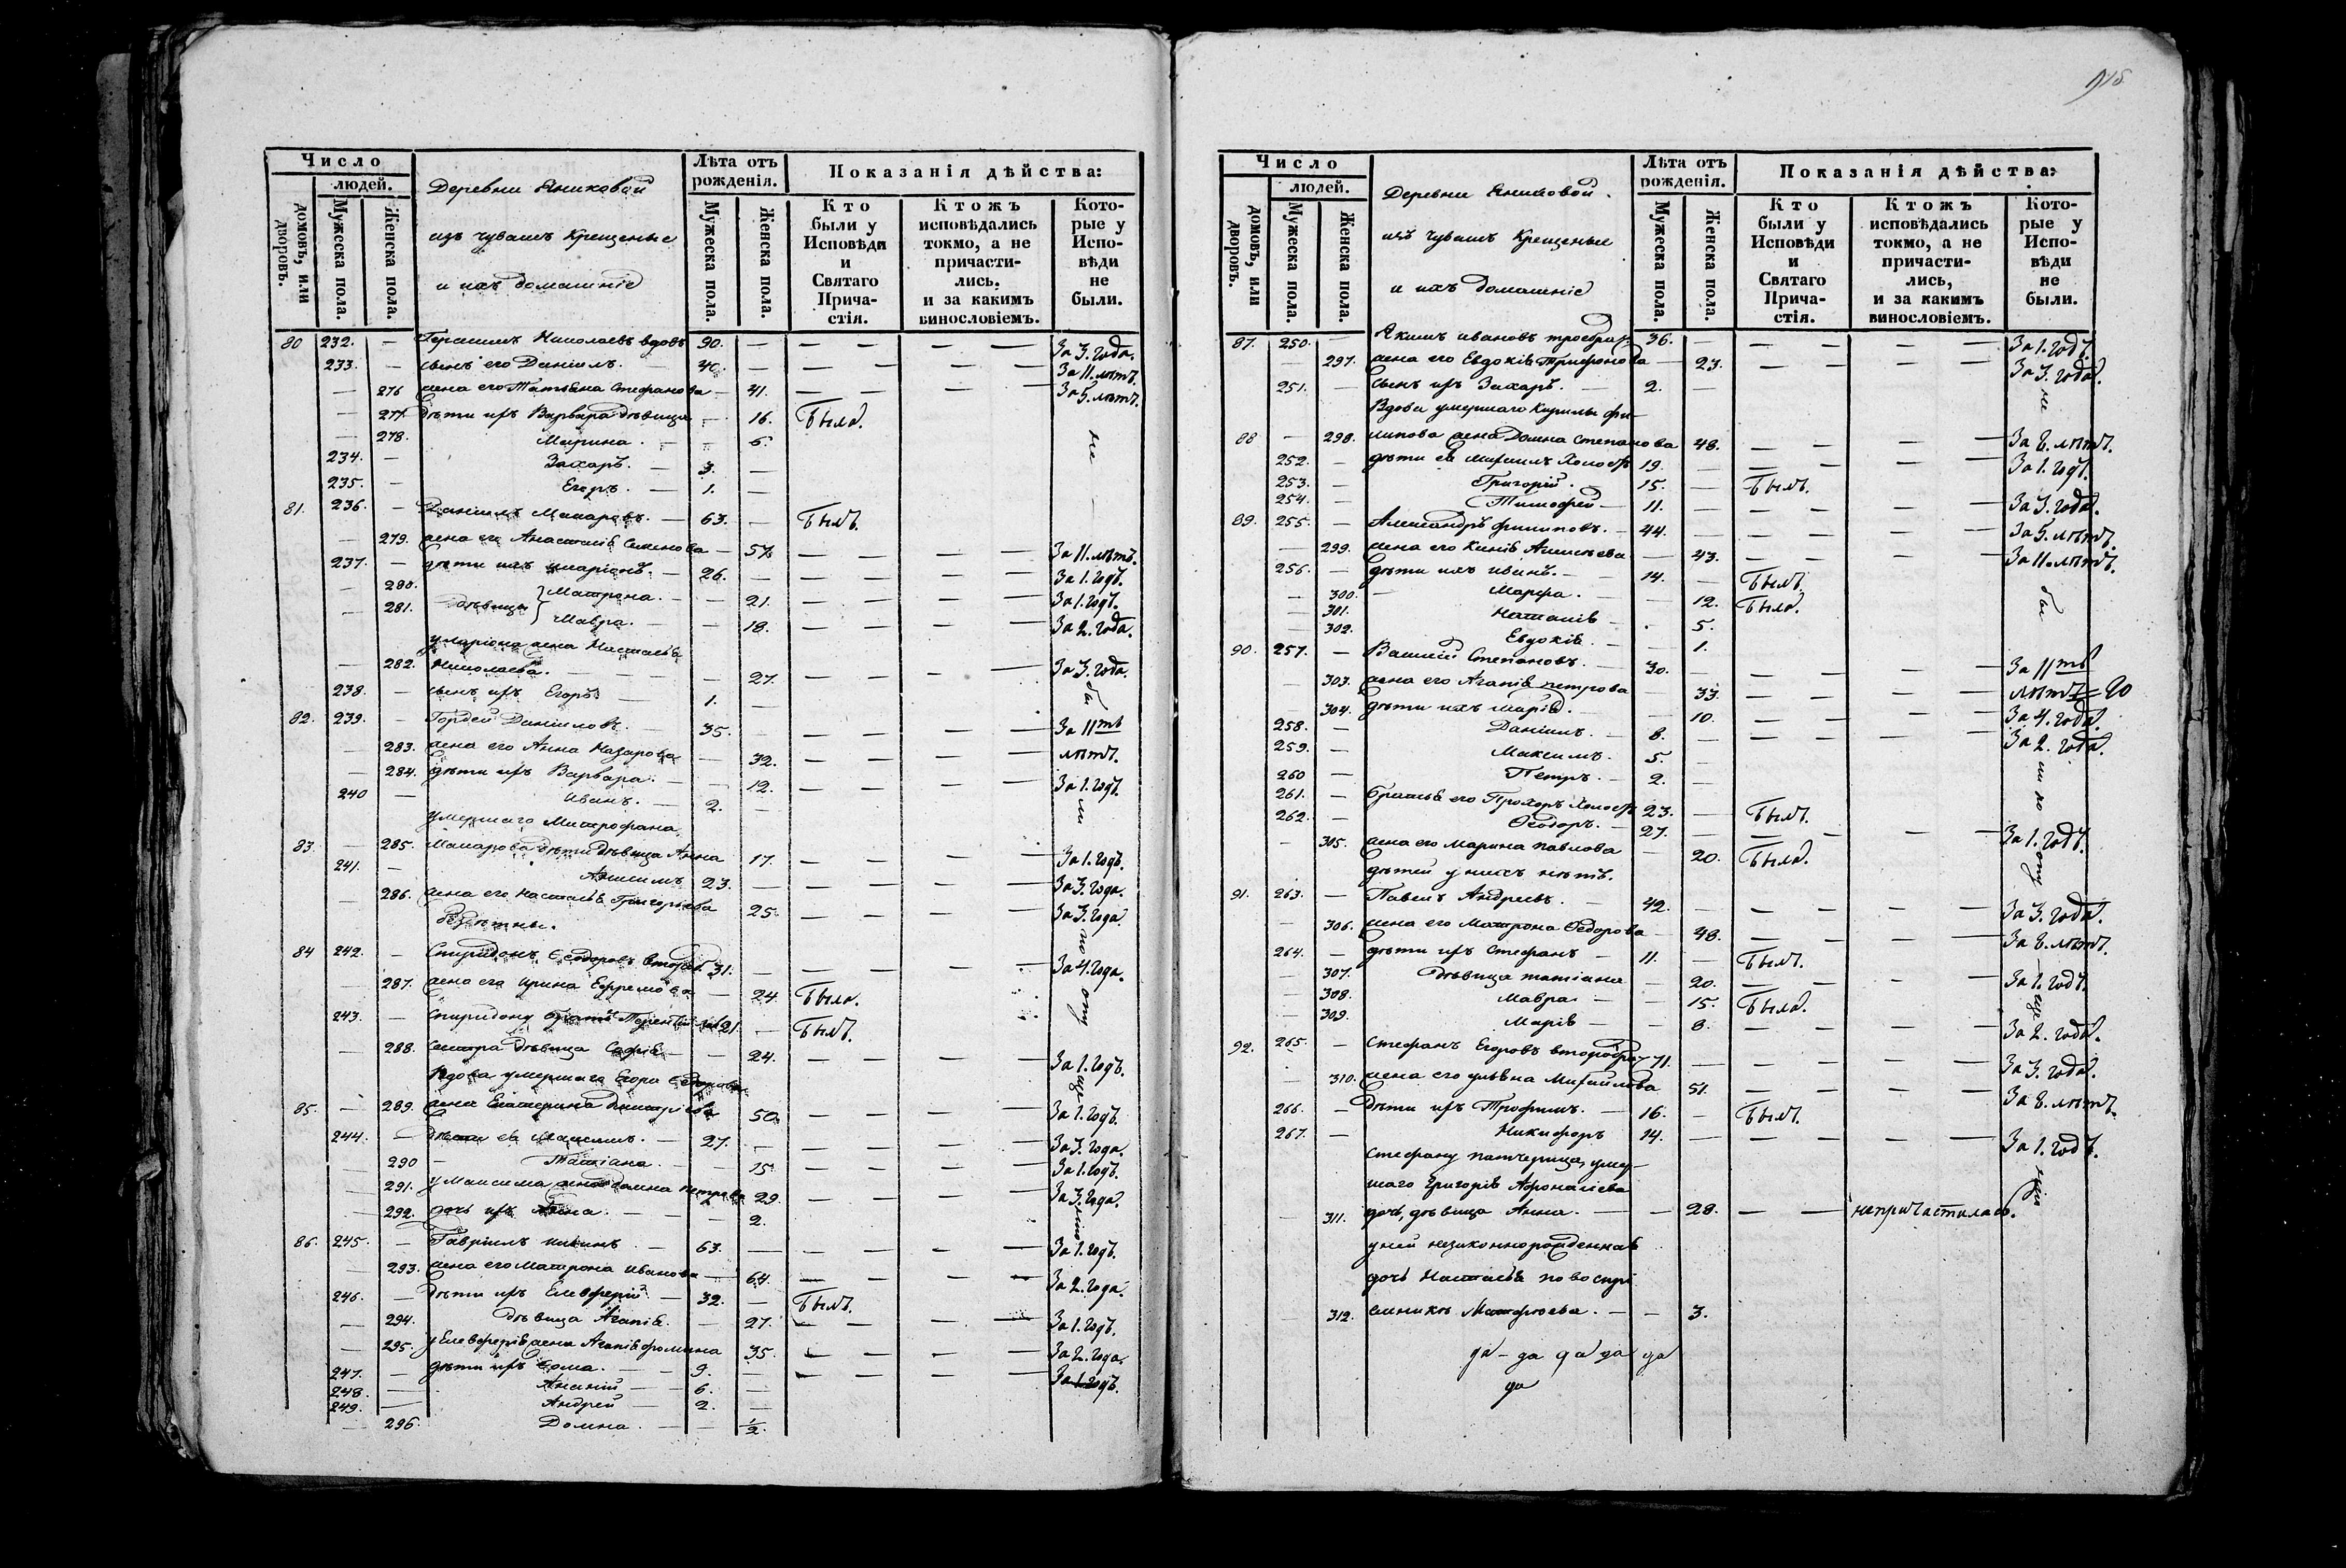 Число
людей.
домовъ, или дворовъ.
Мужеска пола.
Женска пола.
Деревни Яниковой
изъ чувашъ Крещеные
и ихъ домашніе
Лѣта отъ рожденія.
Мужеска пола.
Женска пола.
Показанія дѣйства:
Кто были у Исповѣди и Святаго Прича- стія.
Ктожъ исповѣдались токмо, а не причасти- лись, и за какимъ винословіемъ.
Кото- рые у Испо- вѣди не были.
80 232. — Герасимъ Николаевъ вдовъ 90. — — — — — За 3. года.
233. — сынъ его Даніилъ. — 40. — — — — — За 11. лѣтъ.
— 276 жена его Татьяна Стефанова — 41. — — — — За 5. лѣтъ.
— 277. дѣти ихъ Варвара дѣвица — 16. Была.
— 278. Марина. — — 6. не
234. — Захаръ. — 3. —
235. — Егоръ. — 1. —
81. 236. — Даніилъ Макаровъ. — 63. — Былъ.
— 279. жена его Анастасія Семенова — 57. — — — — За 11. лѣтъ.
237. — дѣти ихъ Иларіонъ. — 26. — — — — — За 1. годъ.
— 280. Матрона. — — 21. — — — — За 1. годъ.
— 281. дѣвицы Мавра. — — 18. — — — — За 2. года.
у Ларіона жена Настасья
— 282. Николаева. — — 27. — — — — За 3. года.
238. — сынъ ихъ Егоръ — 1. — бы
82. 239. — Гордей Даниловъ. — 35. — — — — — За 11ть
— 283. жена его Анна Назарова — 32. — — — — лѣтъ.
— 284. дѣти ихъ Варвара. — — 12. — — — — За 1. годъ.
240 — Иванъ. — 2. — ли
умершаго Митрофана
83. — 285. Макарова дѣти дѣвица Анна 17. — — — — За 1. годъ.
241. — Анисимъ 23. — — — — — За 3. года.
— 286. жена его Настасья Григорьева 25. — — — — За 3. года.
бездѣтны. по
84 242. — Спиридонъ Ѳеодоровъ вторбр. 31. — — — — — За 4. года.
— 287. жена его Ирина Ефремова — 24. Была. ону
243. — Спиридону братъ Терентій 21. — Былъ.
— 288. сестра дѣвица Софія — — 24. — — — — За 1. годъ.
Вдова умершаго Егора
85. — 289. жена Екатерина Дмитріева 50. — — — — За 1. годъ.
244. — дѣти ея Максимъ. — 27. — — — За 3. года.
— 290 — Татіана. — — 15. За 1. годъ.
— 291. у Максима жена Домна Петрова 29. — — — — За 3. года.
— 292. дочь ихъ Анна. — — 2.
86. 245. — Гавріилъ Ивинъ — 63. — — — — За 1. годъ.
— 293. жена его Матрона Иванова — 64. — — — — За 2. года.
246. — дѣти ихъ Елевферій — 32. — Былъ.
— 294. дѣвица Агапія. — 27. — — — — За 1. годъ.
— 295. у Елевферія жена Агапія Фомина 35. — — — — За 2. года.
247. — дѣти ихъ Ѳома. — 9. — — — — — За 1 годъ.
248. — Ананій — 6. —
249. — Андрей — 2. —
— 296. Домна. — — 1/2.
Число
людей.
домовъ, или дворовъ.
Мужеска пола.
Женска пола.
Деревни Яниковой.
изъ чувашъ Крещеные
и ихъ домашніе
Лѣта отъ рожденія.
Мужеска пола.
Женска пола.
Показанія дѣйства:
Кто были у Исповѣди и Святаго Прича- стія.
Ктожъ исповѣдались токмо, а не причасти- лись, и за какимъ винословіемъ.
Кото- рые у Испо- вѣди не были.
87. 250. — Акимъ Ивановъ троебрач. 36. — — — — — За 1. годъ.
— 297. жена его Евдокія Трифонова — 23. — — — — За 3. года.
251. — сынъ ихъ Захаръ. — 2. — не
Вдова умершаго Кирилы Фи-
88 — 298. липова жена Домна Степанова 48. — — — — За 8. лѣтъ.
252. — дѣти ея Михаилъ холостъ 19. — — — — — За 1. годъ.
253. — Григорій. — 15. — Былъ.
254. — Тимофей — 11. — — — — — За 3. года.
89. 255. — Александръ Филиповъ. — 44. — — — — — За 5. лѣтъ.
— 299. жена его Ксенія Алексѣева — 43. — — — — За 11. лѣтъ.
256. — дѣти ихъ Иванъ. — 14. — Былъ.
— 300. — Марфа. — — 12. Была. бы
— 301. Наталія — 5.
— 302. Евдокія — — 1.
90. 257. — Василій Степановъ. — 30. — — — — — За 11ть
— 303. жена его Агапія Петрова — 33. — — — — лѣтъ = 20
— 304. дѣти ихъ Марія. — — 10. — — — — За 4. года.
258. — Даніилъ. — 8. — — — — — За 2. года.
259. — Максимъ. — 5. —
260 — Петръ. — 2. — ли по
261. — братья его Прохоръ холостъ 23. — Былъ.
262. — Ѳеодоръ. — 27. — — — — — За 1. годъ.
— 305. жена его Марина Павлова — 20. Была. ону
дѣтей у нихъ нѣтъ.
91. 263. — Павелъ Андреевъ. — 42. — — — — — За 3. года.
— 306. жена его Матрона Ѳедорова — 48. — — — — За 8. лѣтъ.
264. — дѣти ихъ Стефанъ — 11. — Былъ.
— 307. дѣвица Татіана — 20. — — — — За 1. годъ.
— 308. Мавра — — 15. Была.
— 309. Марія — — 8. — — — — За 2. года.
92. 265. — Стефанъ Егоровъ второбрач. 71. — — — — — За 3. года.
— 310. жена его Ульяна Михайлова 51. — — — — За 8. лѣтъ.
266. — Дѣти ихъ Трофимъ. — 16. — Былъ.
267. — Никифоръ 14. — — — — — За 1. годъ.
Стефану падчерица, умер-
шаго Григорія Афонасіева
— 311. дочь, дѣвица Анна. — — 28. — — непричастилась.
у ней незаконнорожденная
дочь Настасья по воспрі
— 312. емникѣ Матфѣева. — — 3.
да — да да да да
да